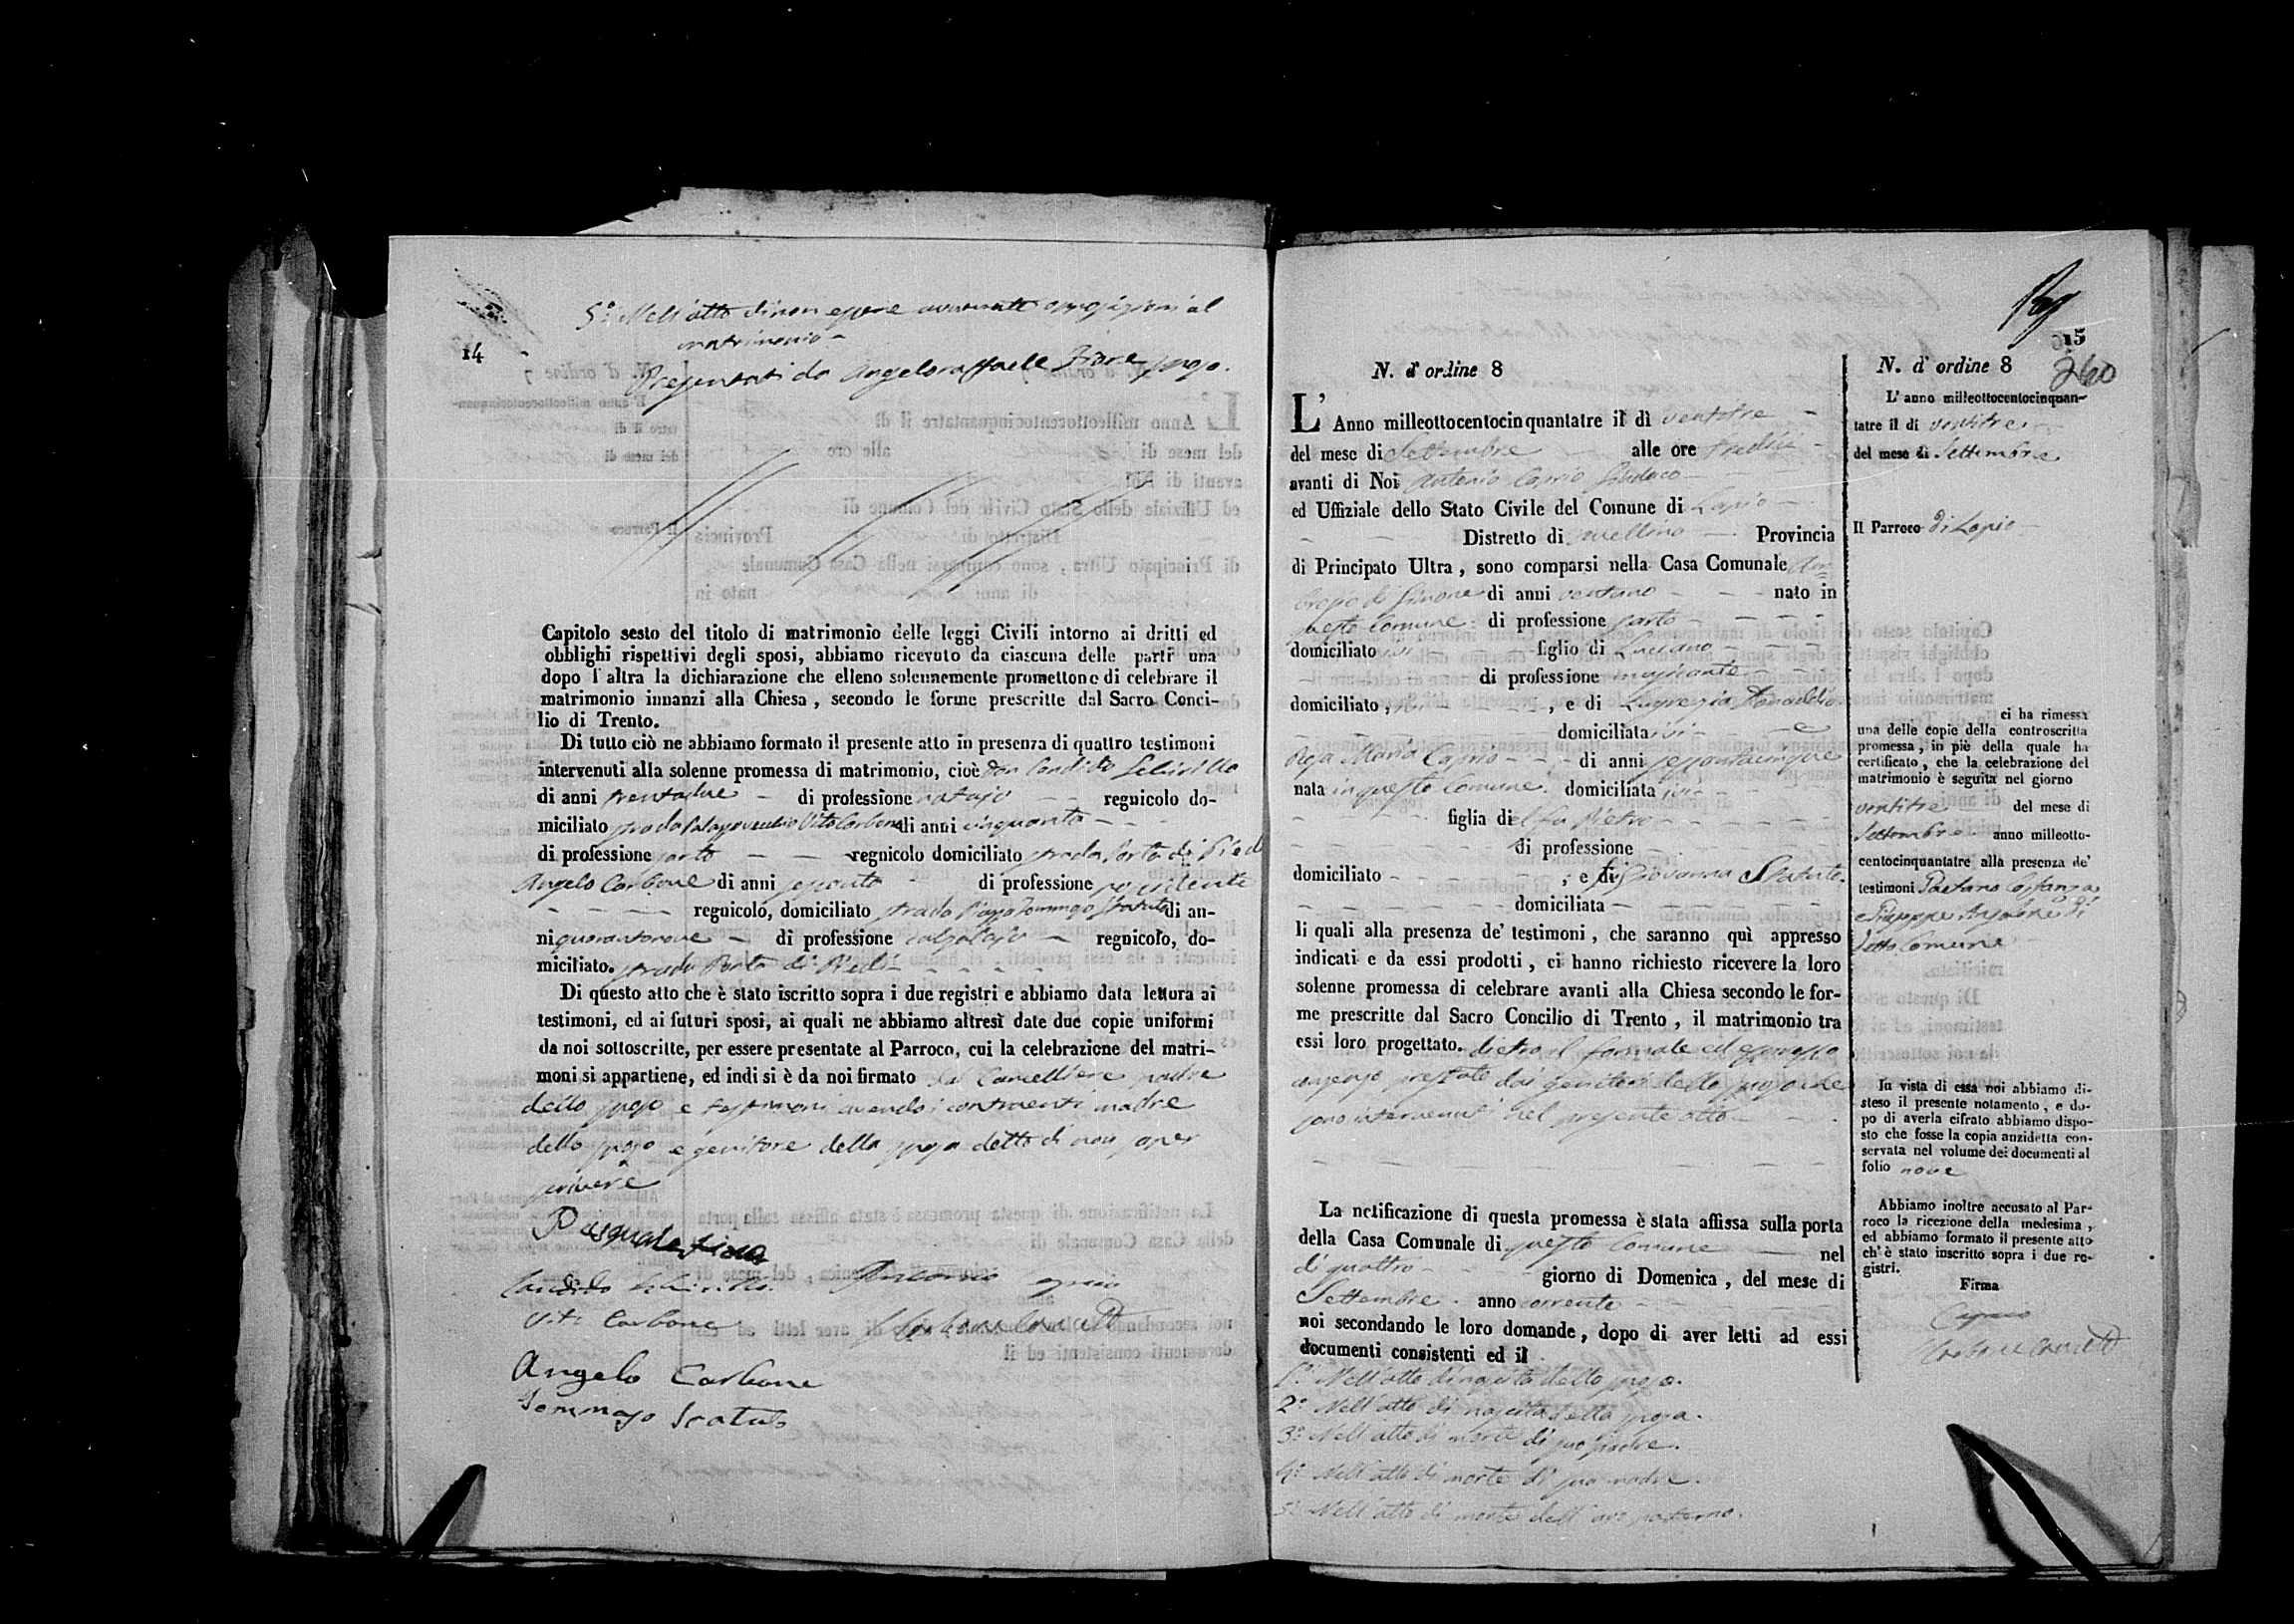 14
5.° Nell'atto di non essere avvenute opposizioni al
matrimonio
Presentati da Angeloraffaele Fiore sposo.
Capitolo sesto del titolo di matrimonio delle leggi Civili intorno ai dritti ed
obblighi rispettivi degli sposi, abbiamo ricevuto da ciascuna delle parti una
dopo l'altra la dichiarazione che elleno solennemente promettono di celebrare il
matrimonio innanzi alla Chiesa , secondo le forme prescritte dal Sacro Conci-
lio di Trento.
Di tutto ciò ne abbiamo formato il presente atto in presenza di quattro testimoni
intervenuti alla solenne promessa di matrimonio, cioè Don Candido
di anni trentadue di professione notajo regnicolo do-
miciliato strada Palazzovecchio Vito Carbone di anni cinquanta
di professione sarto regnicolo domiciliato strada Porta di Piedi
Angelo Carbone di anni sessanta di professione possidente
regnicolo, domiciliato strada Piazza Tommaso Scatuto di an-
ni quarantanove di professione calzolajo regnicolo, do-
miciliato. strada Porta di Piedi
Di questo atto che è stato iscritto sopra i due registri e abbiamo data lettura ai
testimoni, ed ai futuri sposi, ai quali ne abbiamo altresì date due copie uniformi
da noi sottoscritte, per essere presentate al Parroco, cui la celebrazione del matri-
moni si appartiene, ed indi si è da noi firmato dal Cancelliere padre
dello sposo e testimoni avendo i contraenti madre
dello sposo e genitore della sposa detto di non saper
scrivere
Pasquale Fiore
Candido
Antonio Caprio
Vito Carbone
Carbone
Angelo Carbone
Tommaso Scatuto
15
260
N. d' ordine 8
L' Anno milleottocentocinquantatre il dì ventitre
del mese di Settembre alle ore tredici
avanti di Noi Antonio Caprio Sindaco
ed Uffiziale dello Stato Civile del Comune di Lapio
Distretto di Avellino Provincia
di Principato Ultra , sono comparsi nella Casa Comunale Am-
brogio di Simone di anni ventuno nato in
questo Comune di professione sarto
domiciliato ivi figlio di Luciano
di professione
domiciliato , ivi , e di Lugrezia
domiciliata ivi e
Rosa Maria Caprio di anni
nata in questo Comune domiciliata ivi
figlia del fu Pietro
di professione
domiciliato ; e di fu Giovanna Scatuto
domiciliata
li quali alla presenza de' testimoni , che saranno quì appresso
indicati e da essi prodotti , ci hanno richiesto ricevere la loro
solenne promessa di celebrare avanti alla Chiesa secondo le for-
me prescritte dal Sacro Concilio di Trento , il matrimonio tra
essi loro progettato. dietro il formale ed espresso
consenso prestato dai genitori dello sposo che
sono intervenuti nel presente atto
La notificazione di questa promessa è stata affissa sulla porta
della Casa Comunale di questo Comune nel
dì quattro giorno di Domenica , del mese di
Settembre anno corrente
noi secondando le loro domande , dopo di aver letti ad essi
documenti consistenti ed il
1.° Nell'atto di nascita dello sposo.
2.° Nell'atto di nascita della sposa.
3.° Nell'atto di morte di suo padre.
4.° Nell'atto di morte di sua madre.
5.° Nell'atto di morte dell'avo paterno.
N. d' ordine 8
L' anno milleottocentocinquan-
tatre il di ventitre
del mese di Settembre
Il Parroco di Lapio
ci ha rimessa
una delle copie della controscritta
promessa , in piè della quale ha
certificato , che la celebrazione del
matrimonio è seguita nel giorno
ventitre del mese di
Settembre anno milleotto-
centocinquantatre alla presenza de'
testimoni Gaetano
e Giuseppe di
detto Comune
In vista di essa noi abbiamo di-
steso il presente notamento , e do-
po di averla cifrato abbiamo dispo-
sto che fosse la copia anzidetta con-
servata nel volume dei documenti al
folio nove
Abbiamo inoltre accusato al Par-
roco la ricezione della medesima ,
ed abbiamo formato il presente atto
ch' è stato inscritto sopra i due re-
gistri.
Firma
Caprio
Carbone